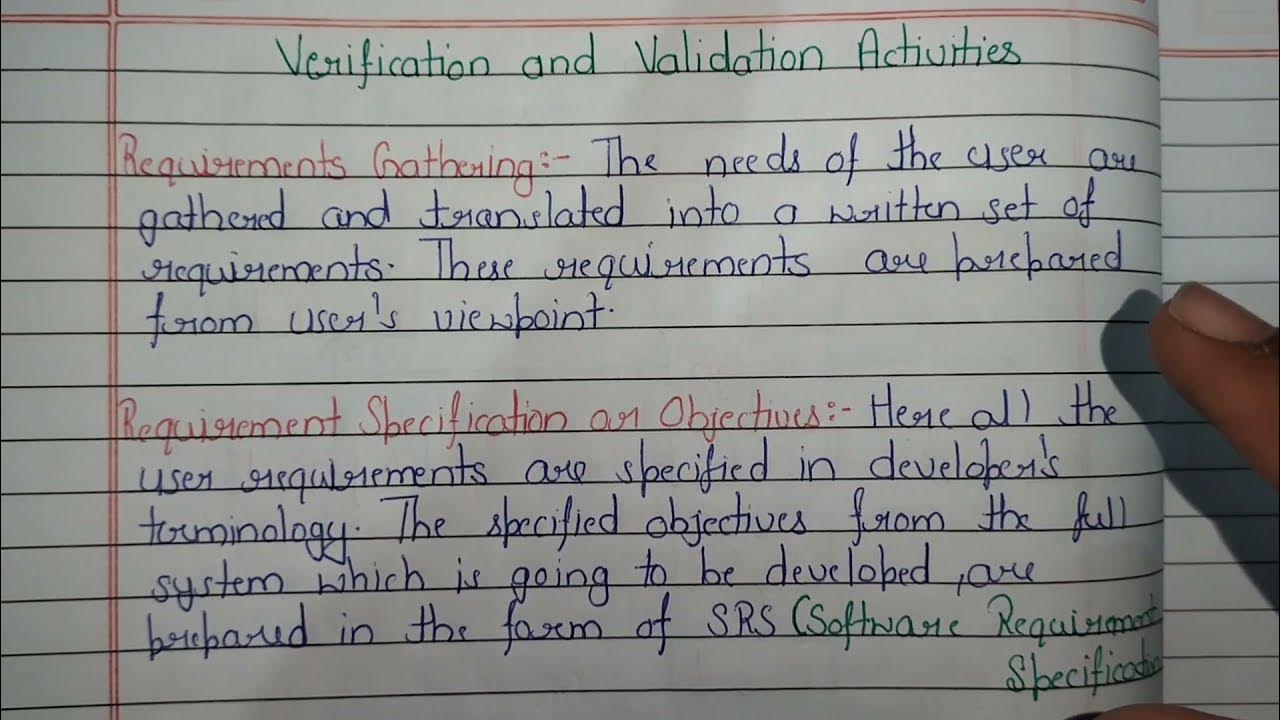 Verification and Validation Activities
Requirements Gathering:- The needs of the user are
gathered and translated into a written set of
requirements. These requirements are prepared
from user's viewpoint.
Requirement Specification or Objectives:- Here all the
user requirements are specified in developer's
terminology. The specified objectives from the full
system which is going to be developed, are
prepared in the form of SRS (Software Requirement
Specification